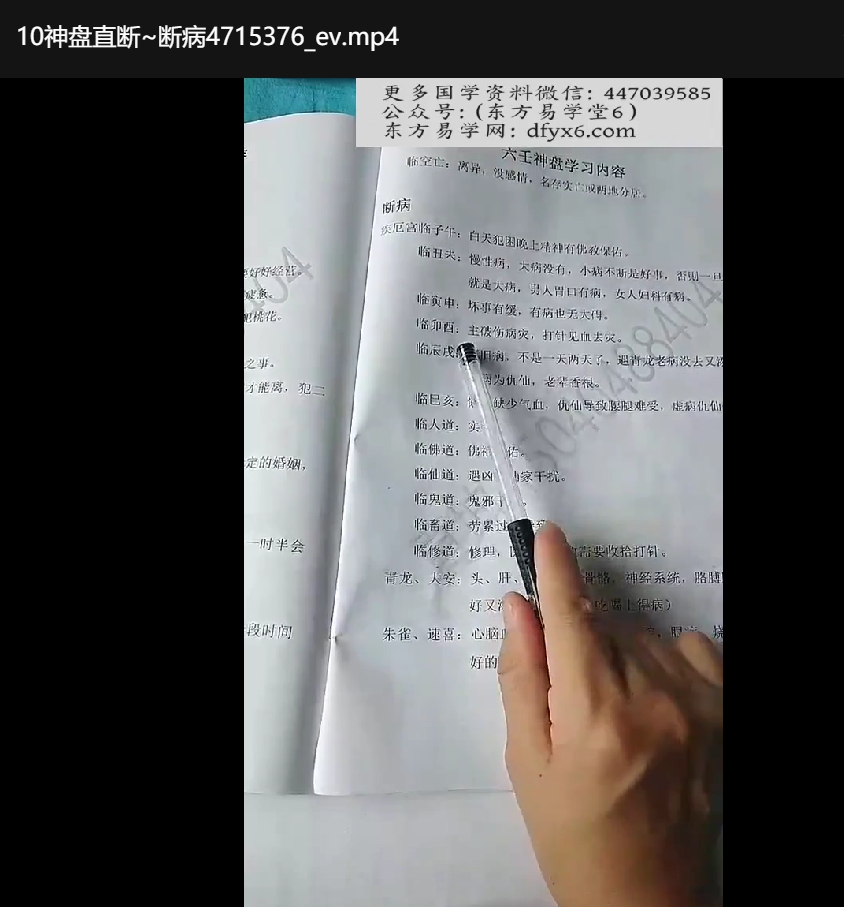 10神盘直断~断病4715376_ev.mp4
更多国学资料微信：447039585
公众号：(东方易学堂6)
东方易学网：dfyx6.com
六壬神盘学习内容
临空亡：离异，没感情，名存实亡或两地分居。
断病
疾厄宫临子午：白天犯困晚上精神有佛教保佑。
临丑未：慢性病，大病没有，小病不断是好事，否则一旦
就是大病，男人胃口有病，女人妇科有病。
临寅申：坏事有缓，有病也无大碍。
临卯酉：主破伤病灾，打针见血去灾。
临辰戌 旧病，不是一天两天了，遇青龙老病没去又
为仇仙，老辈香根。
临巳亥： 缺少气血，仇仙导致腰腿难受，虚病仇仙
临人道：实
临佛道：佛 佑。
临仙道：遇凶 家干扰。
临鬼道：鬼邪
临畜道：劳累过
临修道：修理， 需要收拾打针。
青龙、大安：头、肝、 骨骼，神经系统，胳膊
好又 吃嘴上得病）
朱雀、速喜：心脑
好的
好好经营。
犯桃花。
之事。
才能离，犯二
定的婚姻，
一时半会
段时间